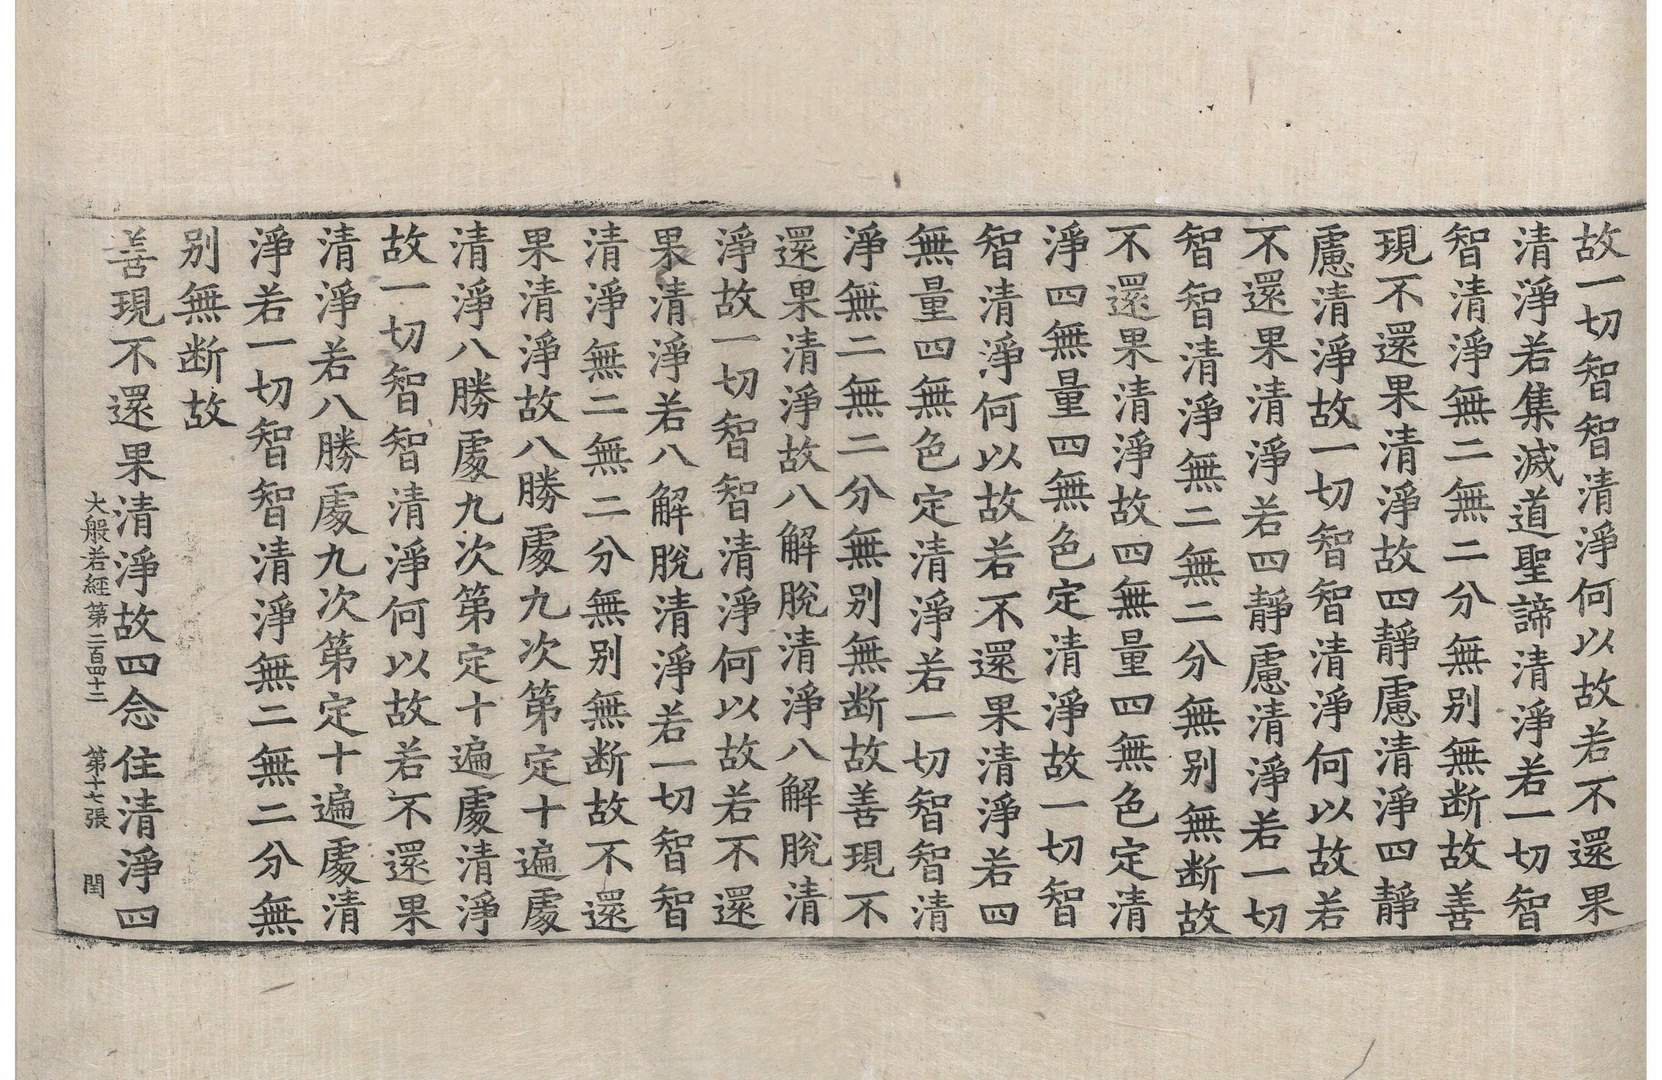 故一切智智清淨何以故若不還果
清淨若集滅道聖諦清淨若一切智
智清淨無二無二分無别無断故善
現不還果清淨故四靜慮清淨四靜
慮清淨故一切智智清淨何以故若
不還果清淨若四靜慮清淨若一切
智智清淨無二無二分無别無断故
不還果清淨故四無量四無色定清
淨四無量四無色定清淨故一切智
智清淨何以故若不還果清淨若四
無量四無色定清淨若一切智智清
淨無二無二分無别無断故善現不
還果清淨故八解脫清淨八解脫清
淨故一切智智清淨何以故若不還
果清淨若八解脫清淨若一切智智
清淨無二無二分無别無断故不還
果清淨故八勝處九次第定十遍處
清淨八勝處九次第定十遍處清淨
故一切智智清淨何以故若不還果
清淨若八勝處九次第定十遍處清
淨若一切智智清淨無二無二分無
别無断故
善現不還果清淨故四念住清淨四
大般若經第二百四十二 第十七張 閏